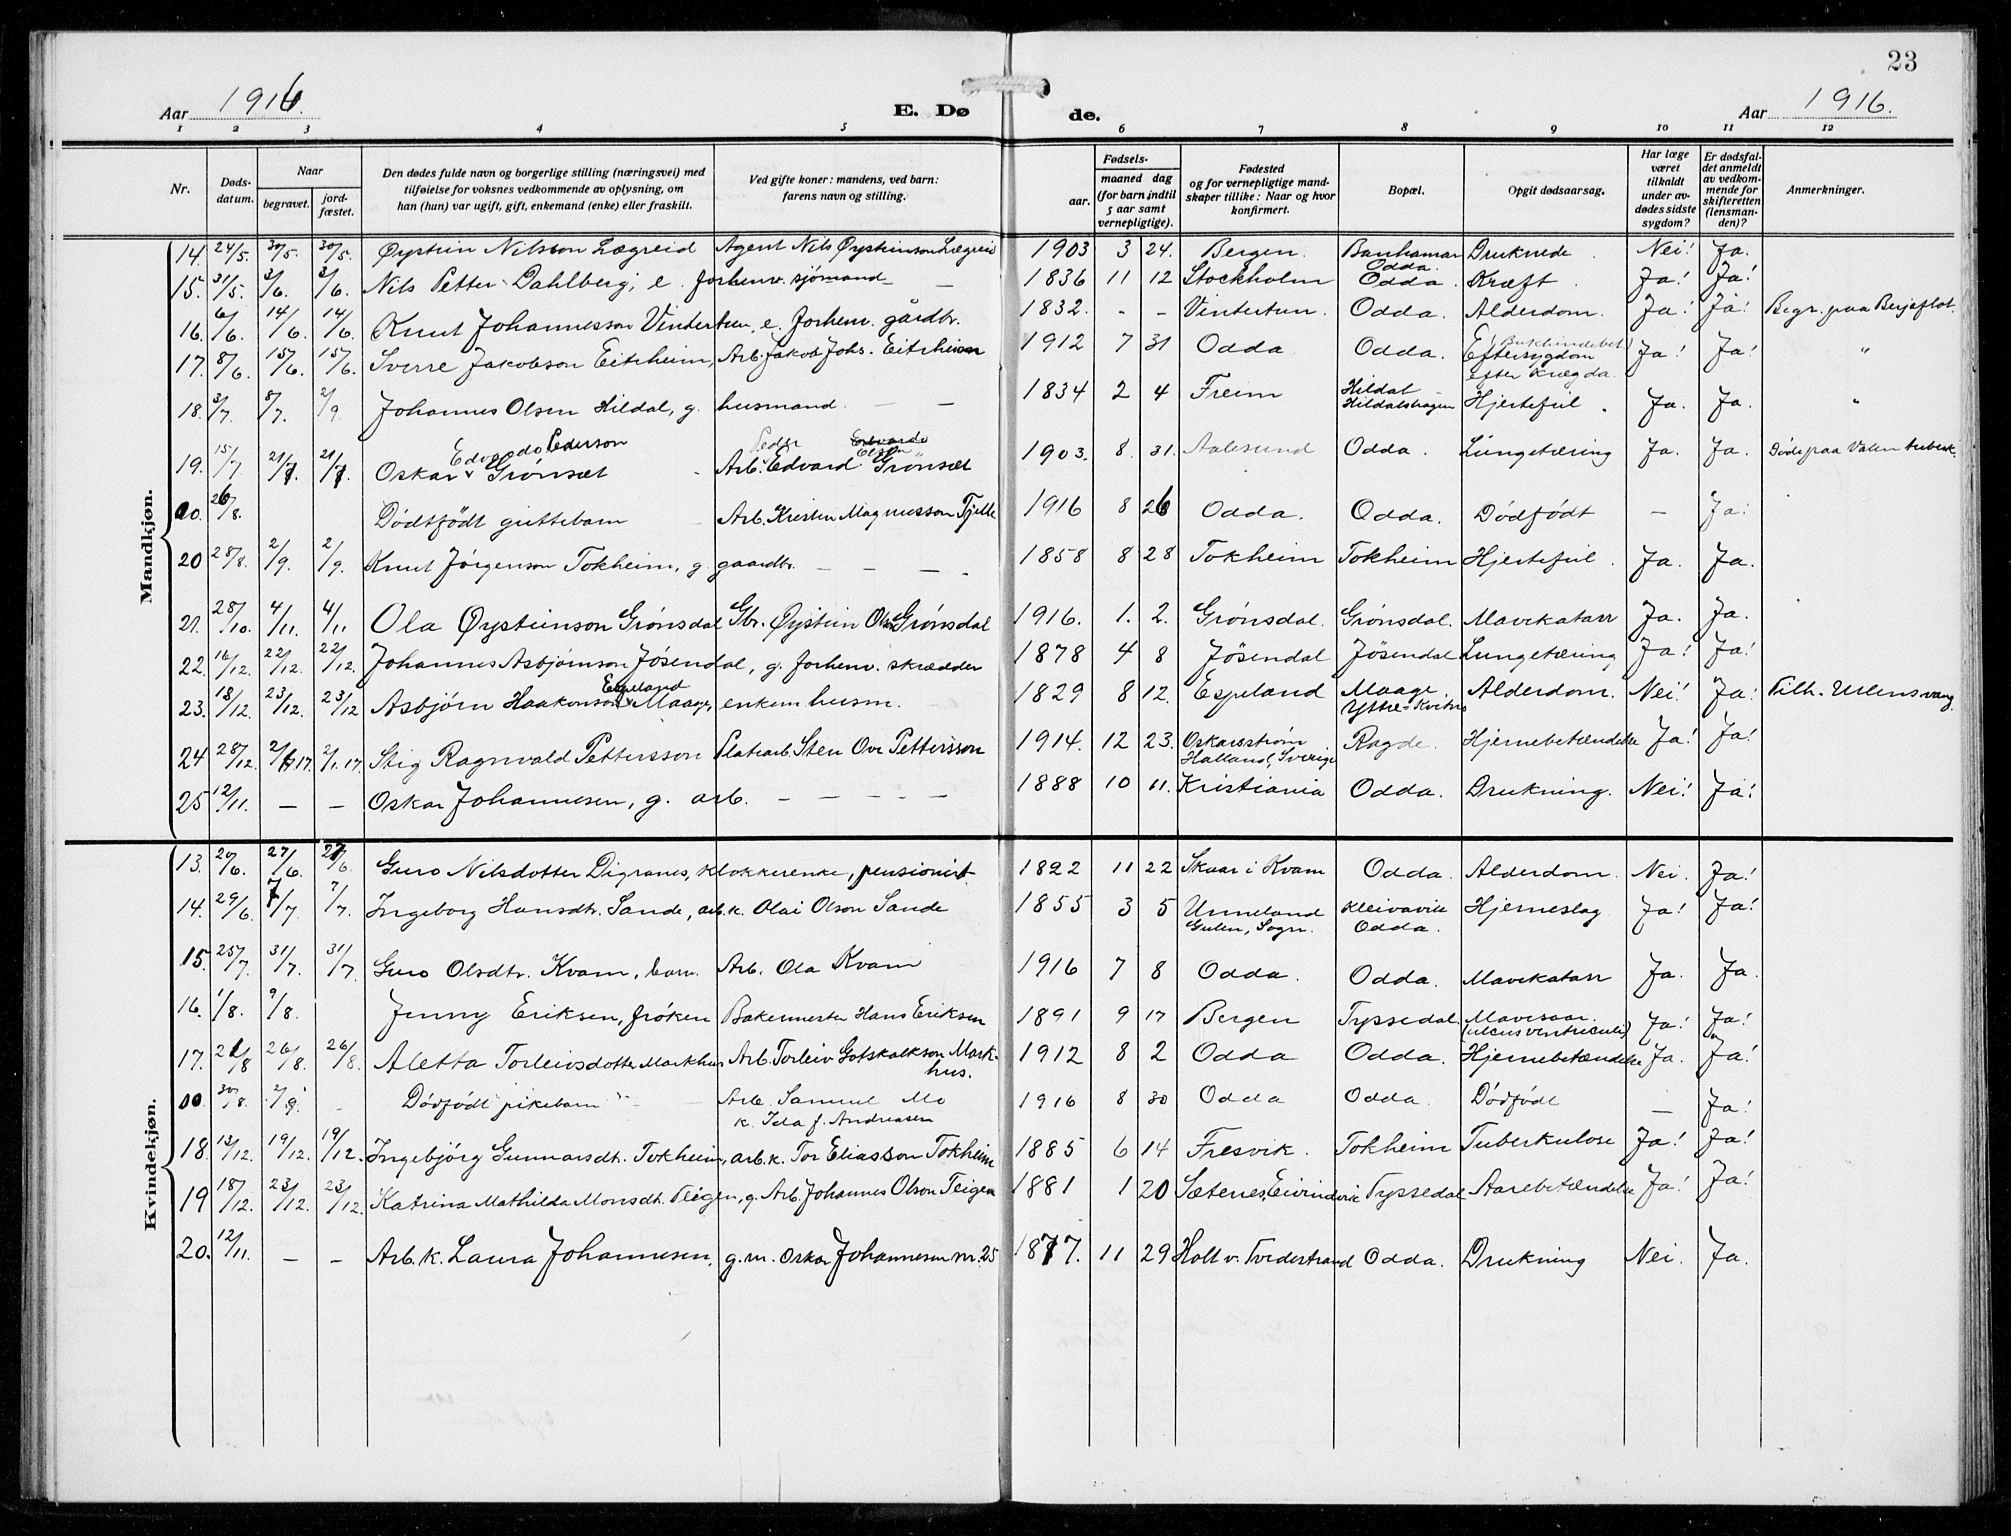 23
Aar 1916. E. Døde. Aar 1916.
1 2 3 4 5 6 7 8 9 10 11 12
Nr. Dødsdatum. Naar begravet. jordfæstet. Den dødes fulde navn og borgerlige stilling (næringsvei) med tilføielse for voksnes vedkommende av oplysning, om han (hun) var ugift, gift, enkemand (enke) eller fraskilt. Ved gifte koner: mandens, ved barn: farens navn og stilling. Fødsels- aar. maaned dag (for barn indtil 5 aar samt vernepligtige). Fødested og for vernepligtige mandskaper tillike: Naar og hvor konfirmert. Bopæl. Opgit dødsaarsag. Har læge været tilkaldt under avdødes sidste sygdom? Er dødsfaldet anmeldt av vedkommende for skifteretten (lensmanden)? Anmerkninger.
Mandkjøn.
14. 24/5. 30/5. 30/5. Øystein Nilsson Lægreid Agent Nils Øysteinson Lægreid 1903 3 24. Bergen. Odda. Druknede. Nei! Ja.
15. 31/5. 3/6. 3/6. Nils Petter Dahlberg, e. forhenv. sjömand — 1836 11 12 Stockholm Odda. Kræft. Ja! Ja!
16. 6/6. 14/6. 14/6. Knut Johannesson Vindertun, e. forhenv. gårdbr. 1832. - - Vintertun. Odda. Alderdom. Ja! Ja! Begr. paa Berjeflot.
17. 8/6. 15/6. 15/6. Sverre Jakobson Eitrheim, Arb. Jakob Johs. Eitrheim 1912 7 31 Odda Odda. Eftersygdom efter Krægda. (Bukhindebet.) Ja! Ja! "
18. 3/7. 8/7. 2/9 Johannes Olsen Hildal, g. husmand. — — 1834 2 4 Freim Hildal Hildalshagen Hjertefeil. Ja. Ja. "
19. 15/7. 21/7. 21/7. Oskar Edvardo Pederson Grønsæt Arb. Peder Edvard Olsen Grönsæt 1903. 8. 31. Aalesund Odda. Lungetæring Ja. Ja. Döde paa Valen tuberk.
00. 26/8. Dödtfödt guttebarn Arb. Kristen Magnusson Tjelle 1916 8 26 Odda. Odda. Dödfödt — Ja!
20 28/8. 2/9. 2/9. Knut Jørgenson Tokheim, g. gaardbr. — — — — 1858 8 28 Tokheim Tokheim Hjertefeil. Ja. Ja.
21. 28/10. 4/11. 4/11 Ola Øysteinson Grønsdal Gbr. Øystein Olson Grønsdal 1916. 1. 2. Grønsdal. Grønsdal. Mavekatarr Ja. Ja.
22. 16/12. 22/12. 22/12. Johannes Asbjørnson Jøsendal, g. forhenv. skrædder 1878 4 8 Jøsendal Jøsendal Lungetæring Ja! Ja!
23. 18/12. 23/12. 23/12 Asbjørn Haakonson Espeland Maage, enkem. husm. 1829 8 12. Espeland Maage. Yttre- Alderdom. Nei! Ja! Tilh. Ullensvang.
24 28/12. 2/1 17. 2/1. 17. Stig Ragnvald Pettersson Platearb. Sten Ove Pettersson 1914. 12 23. Oskarsström. Halland, Sverige Ragde. Hjernebetændelse Ja! Ja!
25 12/11. — — Oskar Johannesen, g. arb. — — — — — 1888 10 11. Kristiania Odda. Drukning. Nei! Ja!
Kvindekjøn.
13. 20/6. 27/6. 27/6 Guro Nilsdotter Digranes, klokkerenke, pensionist. 1822 11 22 Skaar i Kvam Odda. Alderdom. Nei. Ja!
14. 29/6. 7/7. 7/7. Ingeborg Hansdtr. Sande, arb. k. Olai Olson Sande 1855 3 5 Unneland Gulen, Sogn. Kleivavik Odda. Hjerneslag Ja! Ja!
15. 25/7. 31/7. 31/7. Guro Olsdtr. Kvam, barn. Arb. Ola Kvam 1916 7 8 Odda. Odda. Mavekatarr Ja. Ja.
16. 1/8. 9/8. Jenny Eriksen, frøken Bakermester Hans Eriksen 1891 9 17 Bergen Tyssedal Mavesaar. (ulcus ventriculi) Ja! Ja!
17. 21/8 26/8. 26/8. Aletta Torleivsdotter Markhus Arb. Torleiv Gotskalkson Markhus. 1912 8 2 Odda Odda. Hjernebetændelse Ja. Ja!
00. 30/8. 2/9. - Dödfödt pikebarn Arb. Samuel Mo k. Ida f. Andreasen 1916 8 30 Odda Odda. Dödfödt — Ja!
18. 13/12. 19/12. 19/12. Ingebjörg Gunnarsdt. Tokheim, arb. k. Tor Eliasson Tokheim 1885 6 14 Fresvik. Tokheim Tuberkulose Ja! Ja!
19 18/12. 23/12. 23/12. Katrina Mathilda Monsdt. Teigen, g. Arb. Johannes Olson Teigen 1881 1 20 Sætenes, Eivindvik Tyssedal Aarebetændelse Ja! Ja!
20. 12/11. — — Arb. k. Laura Johannesen, g. m. Oskar Johannesen nr. 25 1877. 11 29 Holt v. Tvedestrand Odda. Drukning Nei. Ja.